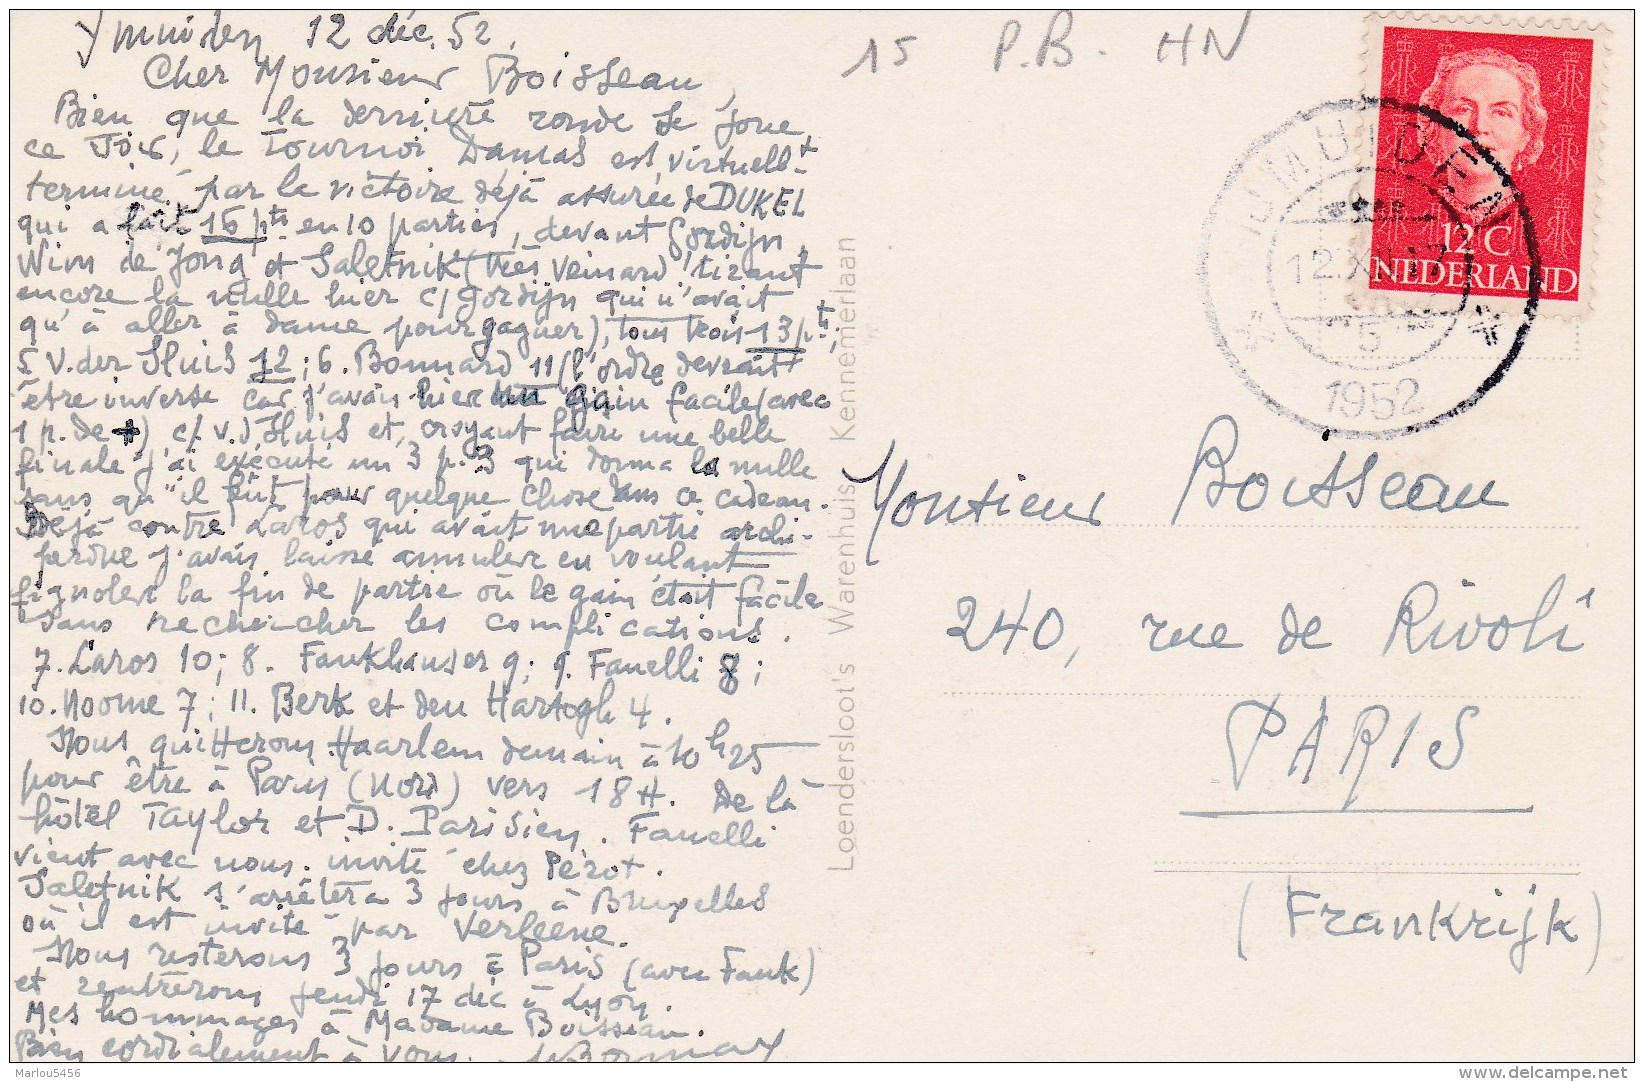 Ymuiden 12 déc. 52.
Cher Monsieur Boisseau,
Bien que la dernière ronde se joue
ce soir, le Tournoi Damas est virtuellt
terminé par la victoire déjà assurée de DUKEL
qui a fait 16 pts en 10 parties, devant Gordijn,
Wim de Jong et Saletnik (très veinard tirant
encore la nulle hier c/ Gordijn qui n'avait
qu'à aller à dame pour gagner), tous trois 13 pts;
5 v. der Sluis 12; 6. Bonnard 11 (l'ordre devrait
être inverse car j'avais hier un gain facile (avec
1 p. de +) c/ v.d Sluis et, croyant faire une belle
finale j'ai exécuté un 3 p. 3 qui donna la nulle
sans qu'il fût pour quelque chose dans ce cadeau.
Déjà contre Laros qui avait une partie archi-
perdue j'avais laissé annuler en voulant
fignoler la fin de partie où le gain était facile
sans rechercher les complications.
7. Laros 10; 8. Fankhauser 9; 9. Fanelli 8;
10. Noome 7; 11. Berk et den Hartogh 4.
Nous quitterons Haarlem demain à 10h25
pour être à Paris (Nord) vers 18 H. De là
hôtel Taylor et D. Parisien. Fanelli
vient avec nous. invité chez Pérot.
Saletnik s'arrêtera 3 jours à Bruxelles
où il est invité par Verleene.
Nous resterons 3 jours à Paris (avec Fank)
et rentrerons jeudi 17 déc à Lyon.
Mes hommages à Madame Boisseau.
Bien cordialement à vous.
15 P.B. HN
Loendersloot's Warenhuis Kennemerlaan
12 C
NEDERLAND
IJMUIDEN
12.XII.17
5
1952
Monsieur Boisseau
240, rue de Rivoli
PARIS
(Frankrijk)
Marlou5456
delcampe.net